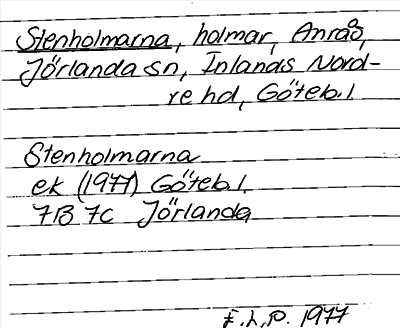 Stenholmarna, holmar, Anrås,
Jörlanda sn, Inlands Nord-
re hd, Göteb.l.
Stenholmarna
ek (1977) Göteb.l.
7B 7c Jörlanda
E.L.P. 1977